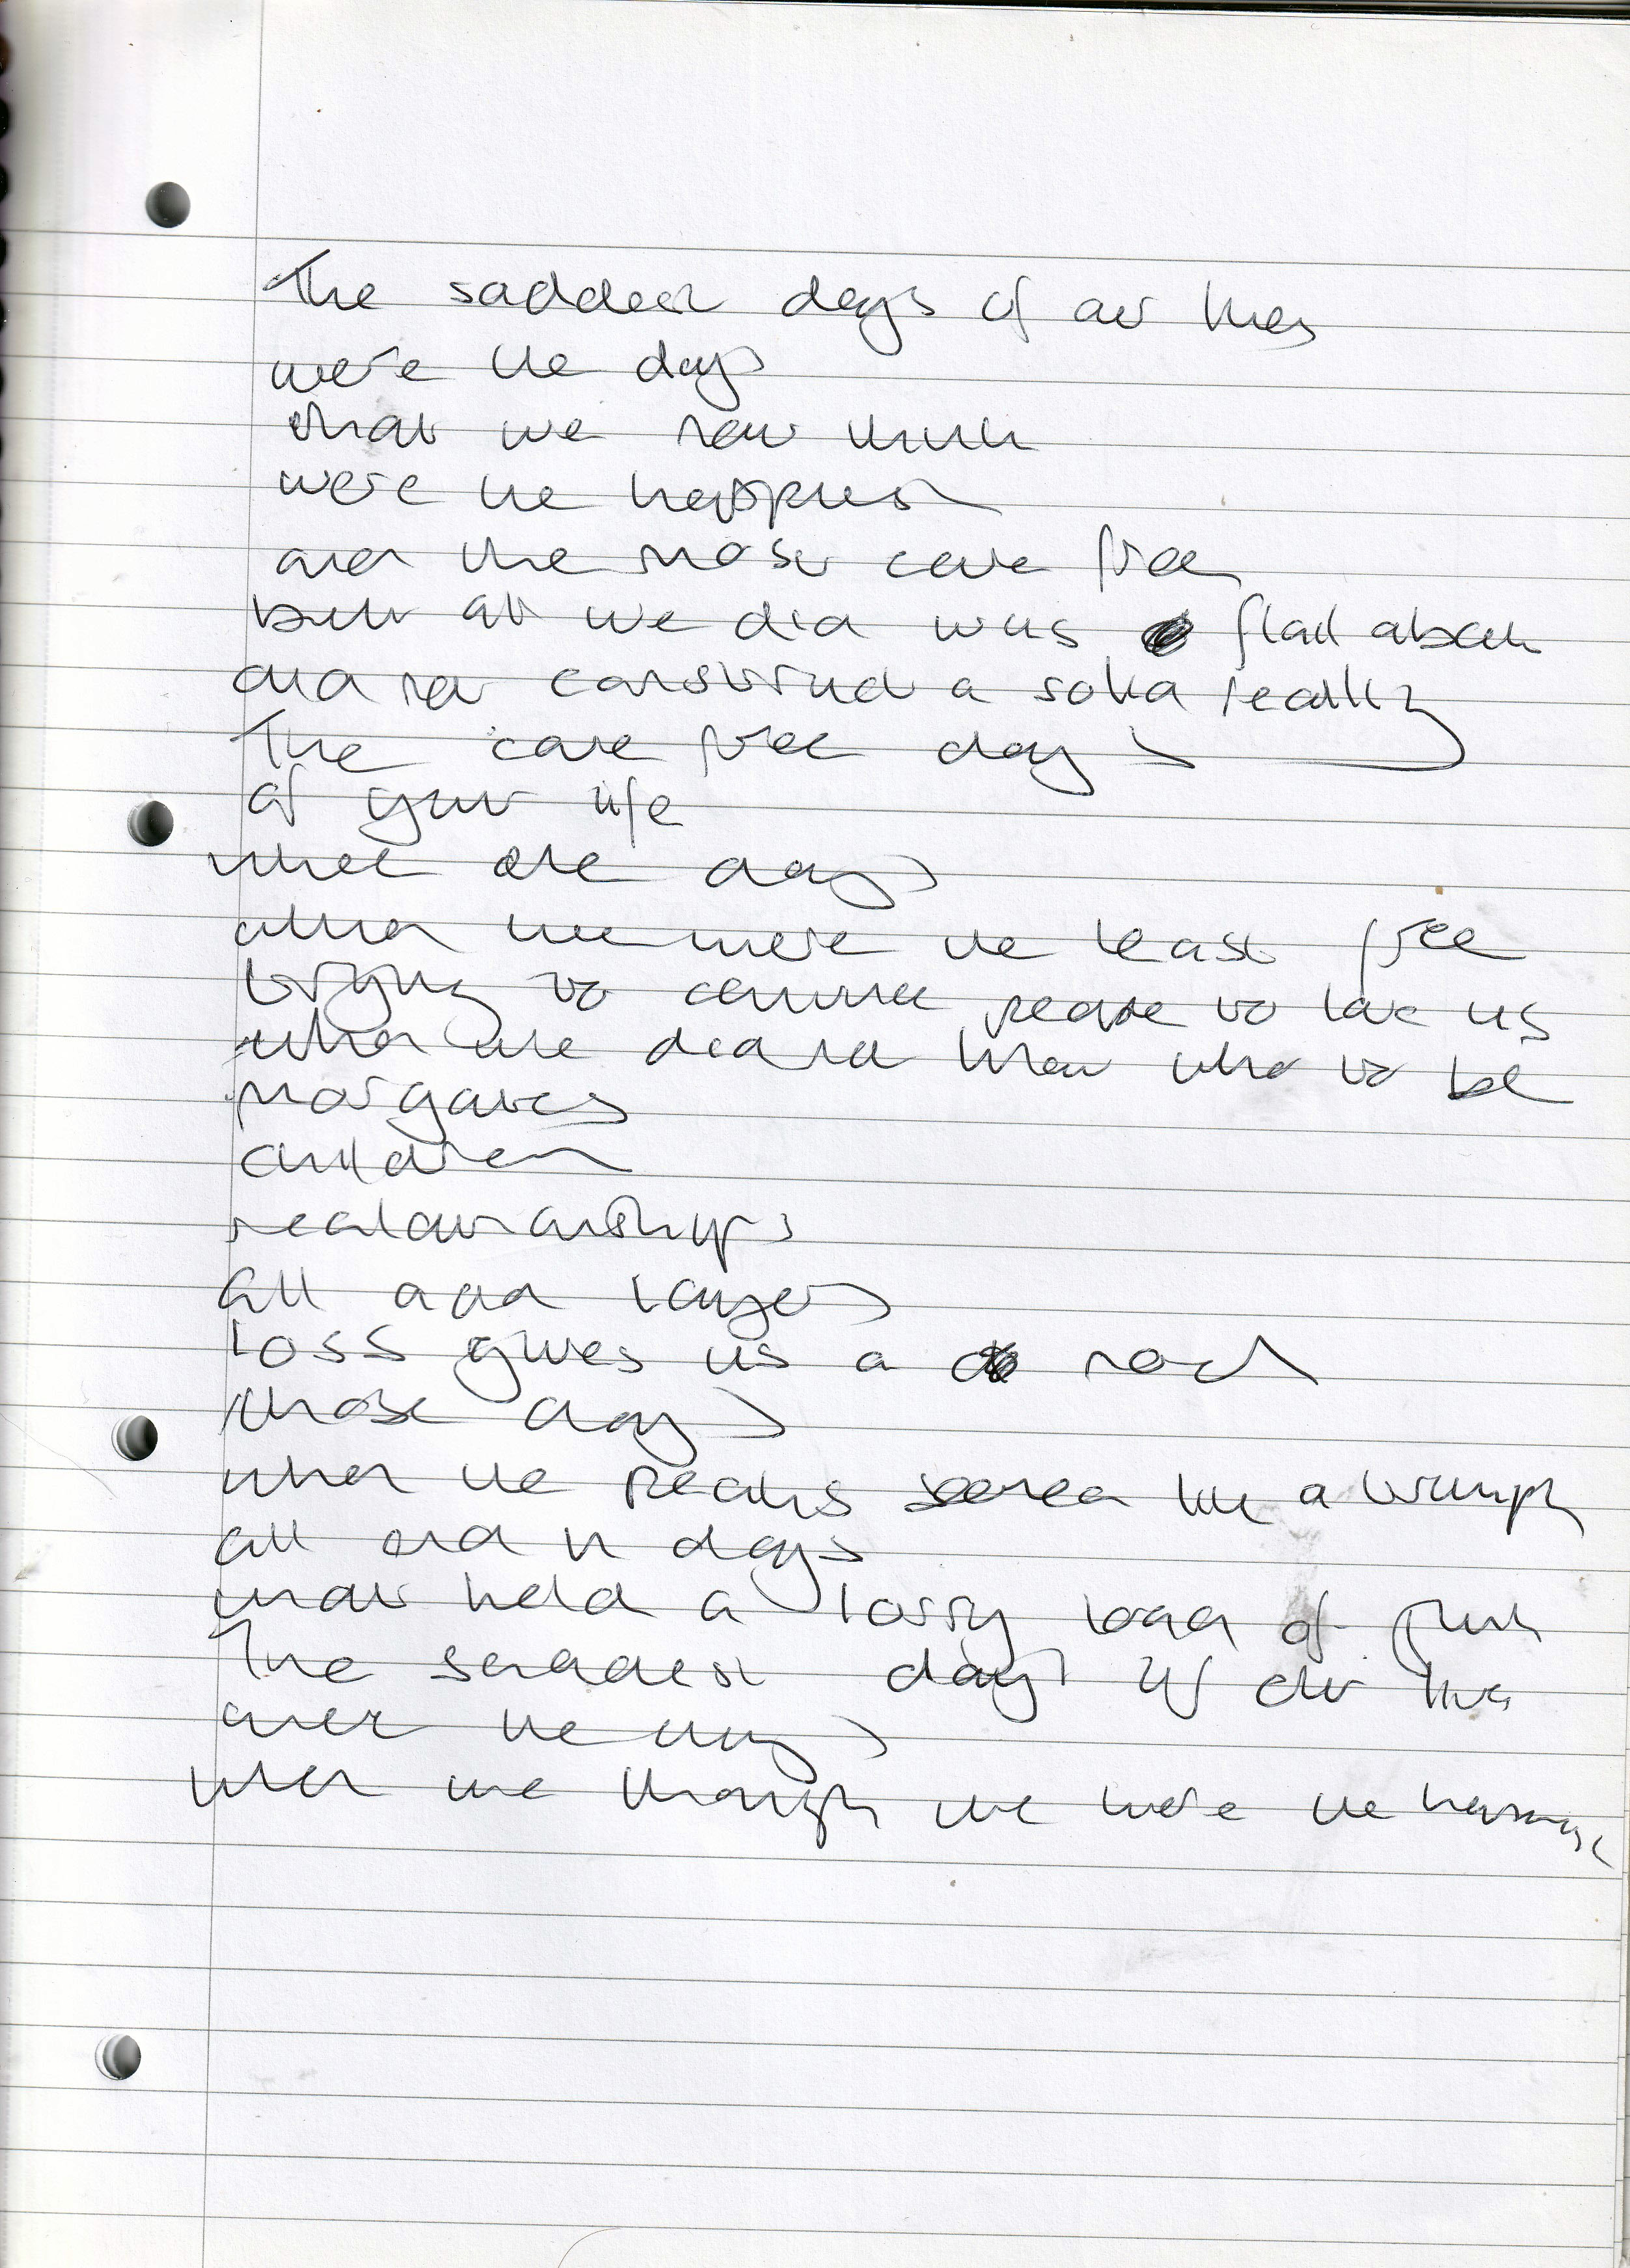 The saddest days of our lives
were the days
that we now think
were the happiest
and the most care free
but all we did was flail about
and not construct a solid reality
The care free days
of your life
were the days
when we were the least free
trying to convince people to love us
when we didnt know who to be
Morgages
children
realationships
all add layers
loss gives us a rock
those days
when the peaks seemed like a triumph
all end in days
that held a lorry load of
The saddest days of our lives
were the days
when we though we were the happiest